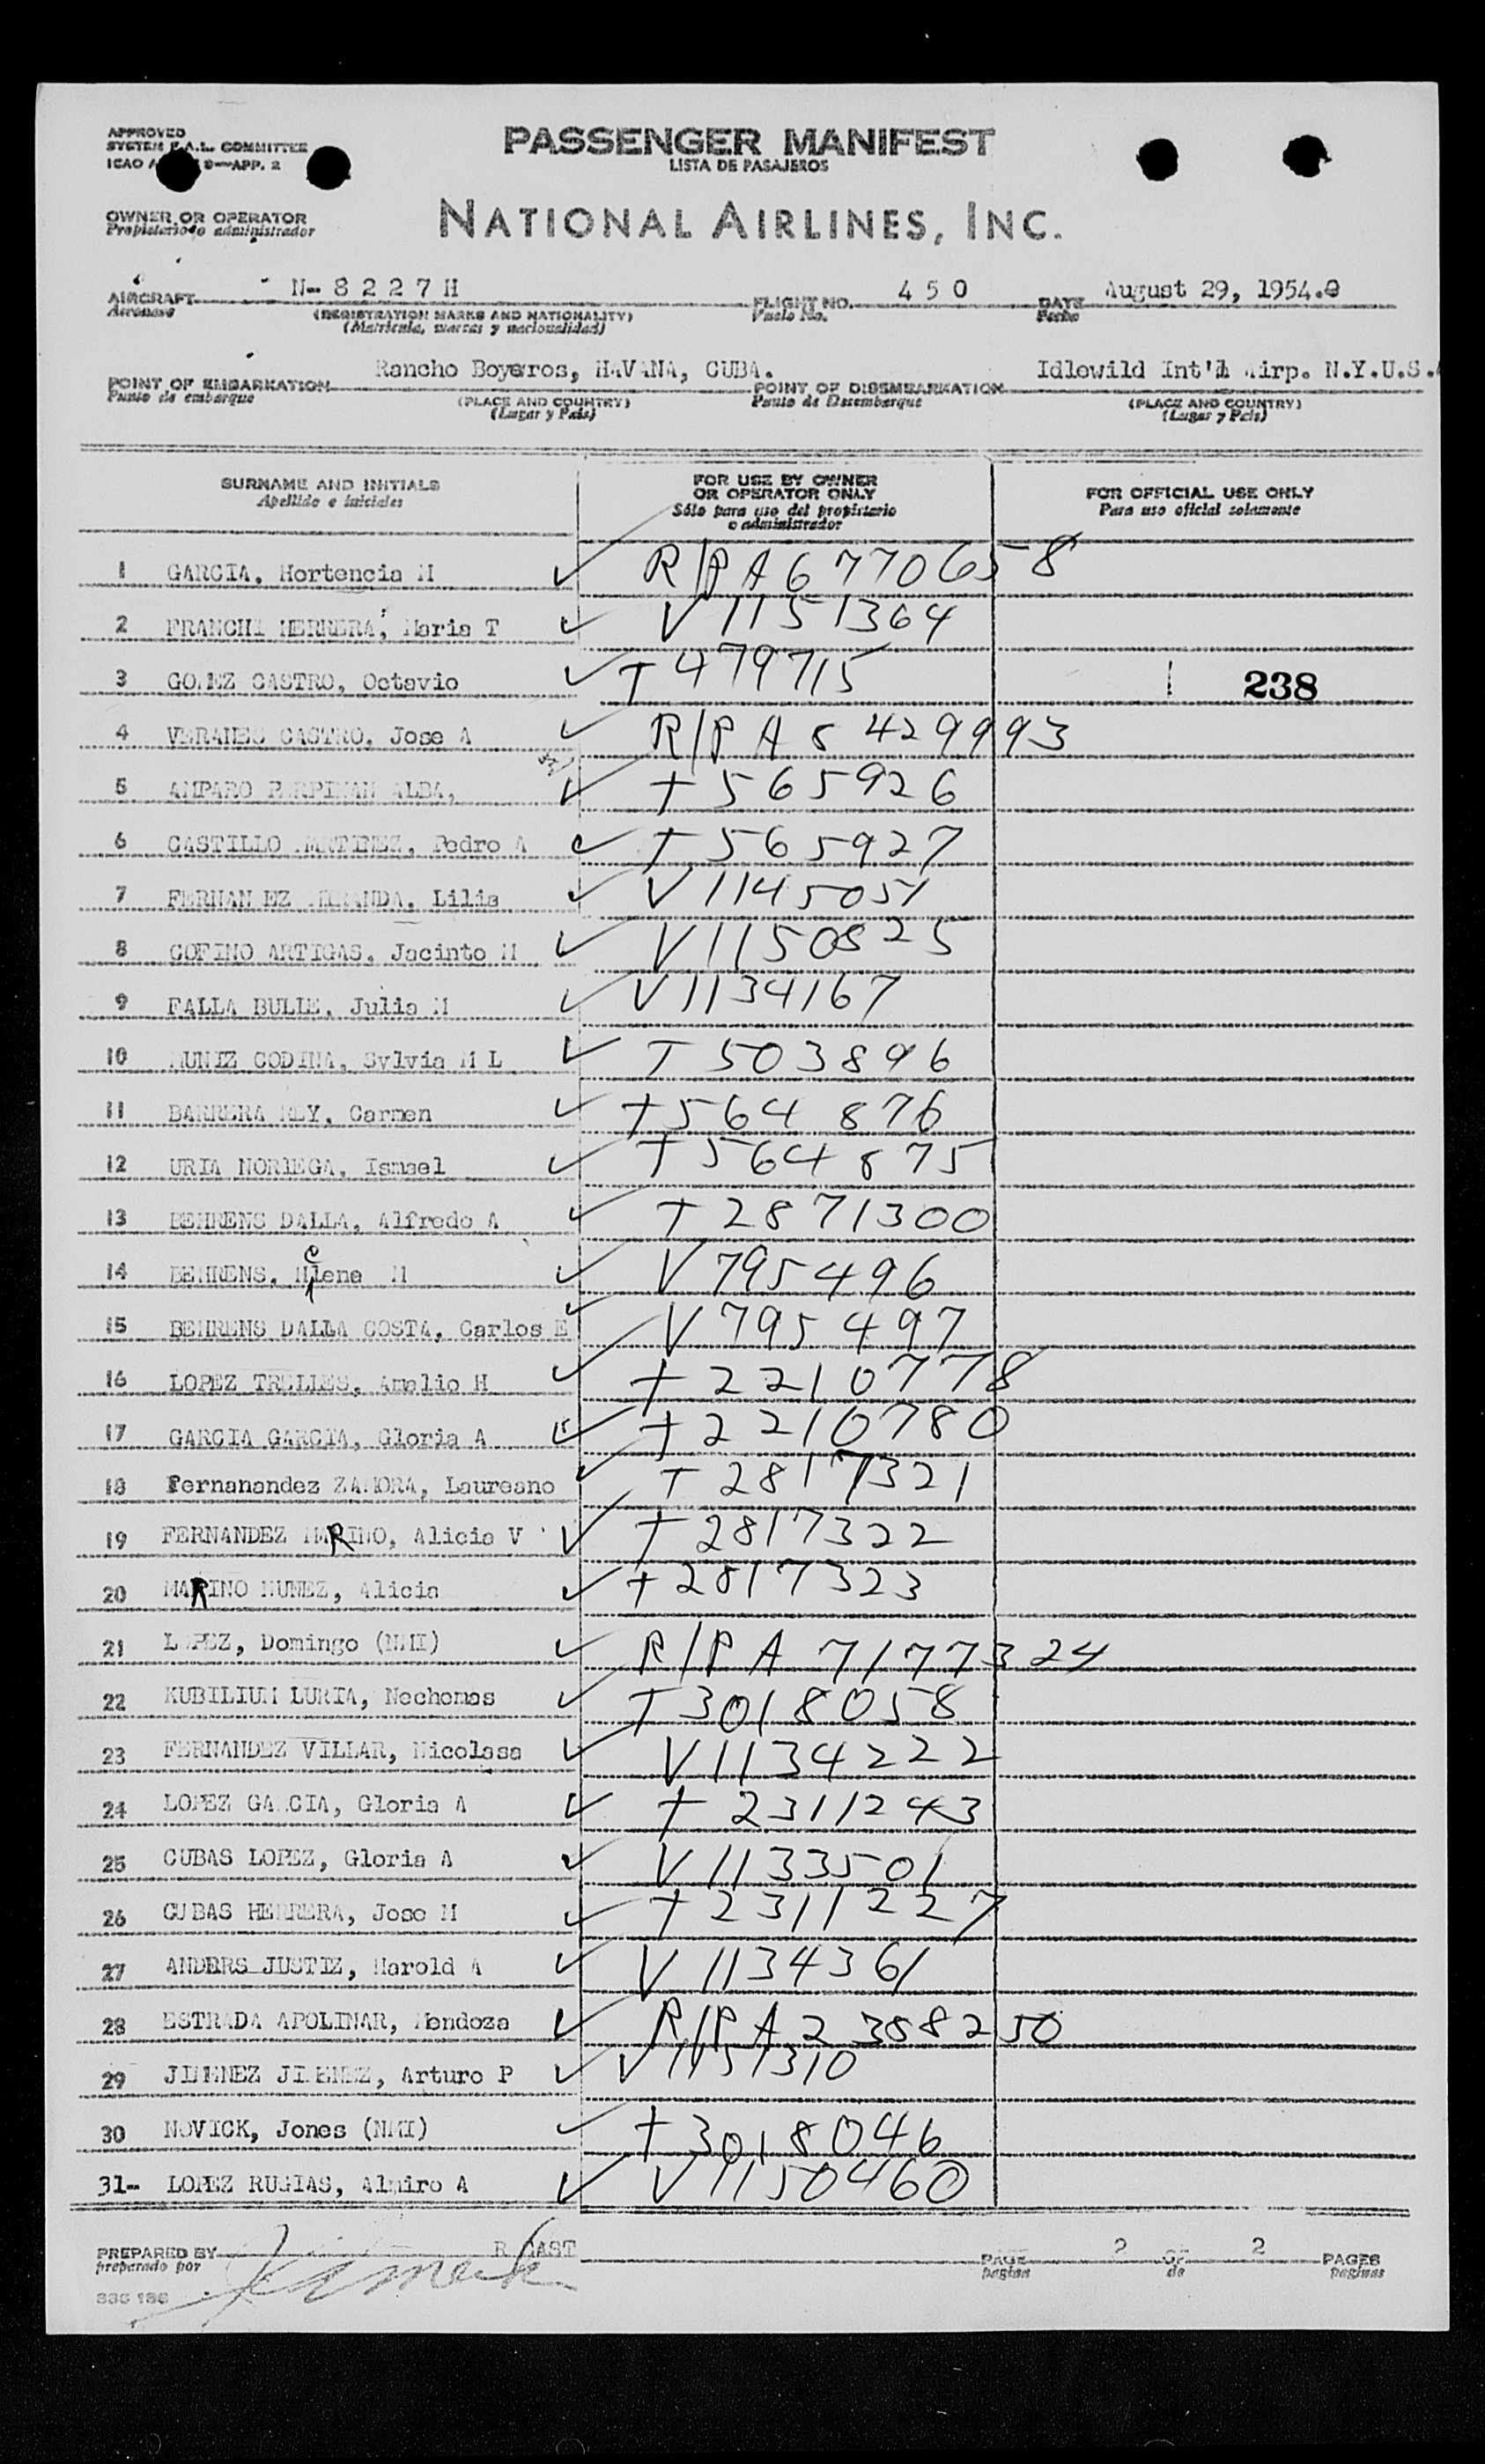 APPROVED
SYSTEM F.A.L. COMMITTEE
ICAO 9—APP. 2
PASSENGER MANIFEST
LISTA DE PASAJEROS
OWNER OR OPERATOR
Propietario o administrador
NATIONAL AIRLINES, INC.
AIRCRAFT N- 8 2 2 7 H FLIGHT NO. 4 5 0 DATE August 29, 1954.
Aeronave (REGISTRATION MARKS AND NATIONALITY) Vuelo No. Fecha
(Matricula, marcas y nacionalidad)
POINT OF EMBARKATION Rancho Boyeros, HAVANA, CUBA. POINT OF DISEMBARKATION Idlewild Int'l Airp. N.Y.U.S.
Punto de embarque (PLACE AND COUNTRY) Punto de Desembarque (PLACE AND COUNTRY)
(Lugar y Pais) (Lugar y Pais)
SURNAME AND INITIALS
Apellido e iniciales
FOR USE BY OWNER
OR OPERATOR ONLY
Sólo para uso del propietario
o administrador
FOR OFFICIAL USE ONLY
Para uso oficial solamente
1 GARCIA, Hortencia M R/P A6770658
2 FRANCHI HERRERA, Maria T V 1151364
3 GOMEZ CASTRO, Octavio T 479715 238
4 VERANES CASTRO, Jose A R/P A 8429993
5 AMPARO PERPINAN ALBA, T 565926
6 CASTILLO Pedro A T 565927
7 FERNANDEZ MIRANDA, Lilia V 1145051
8 COFINO ARTIGAS, Jacinto M V 1150825
9 FALLA BULLE, Julia M V 1134167
10 MUNIZ CODINA, Sylvia M L T 503896
11 BARRERA REY, Carmen T 564876
12 URIA NORIEGA, Ismael T 564875
13 BEHRENS DALLA, Alfredo A T 2871300
14 BEHRENS, M V 795496
15 BEHRENS DALLA COSTA, Carlos E V 795497
16 LOPEZ TRELLES, Amelio H T 2210778
17 GARCIA GARCIA, Gloria A T 2210780
18 Fernanandez ZAMORA, Laureano T 2817321
19 FERNANDEZ MARINO, Alicia V T 2817322
20 MARINO NUNEZ, Alicia T 2817323
21 LOPEZ, Domingo (NMI) R/P A 7177324
22 KUBILIUM LURIA, Nechomas T 3018058
23 FERNANDEZ VILLAR, Nicolasa V 1134222
24 LOPEZ GARCIA, Gloria A T 2311243
25 CUBAS LOPEZ, Gloria A V 1133501
26 CUBAS HERRERA, Jose M T 2311227
27 ANDERS JUSTIZ, Harold A V 1134361
28 ESTRADA APOLINAR, Mendoza R/P A 2388250
29 JIMENEZ JIMENEZ, Arturo P V 1151310
30 NOVICK, Jones (NMI) T 3018046
31- LOPEZ RUGIAS, Almiro A V 1150460
PREPARED BY R CAST PAGE 2 OF 2 PAGES
preparado por pagina de paginas